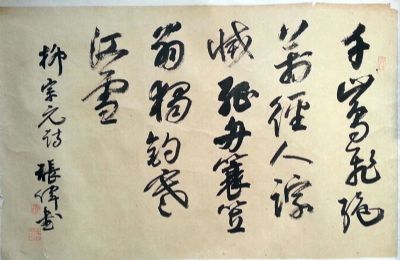 千山鳥飛絕
萬徑人踪
滅孤舟蓑笠
翁獨釣寒
江雪
柳宗元詩 張偉書